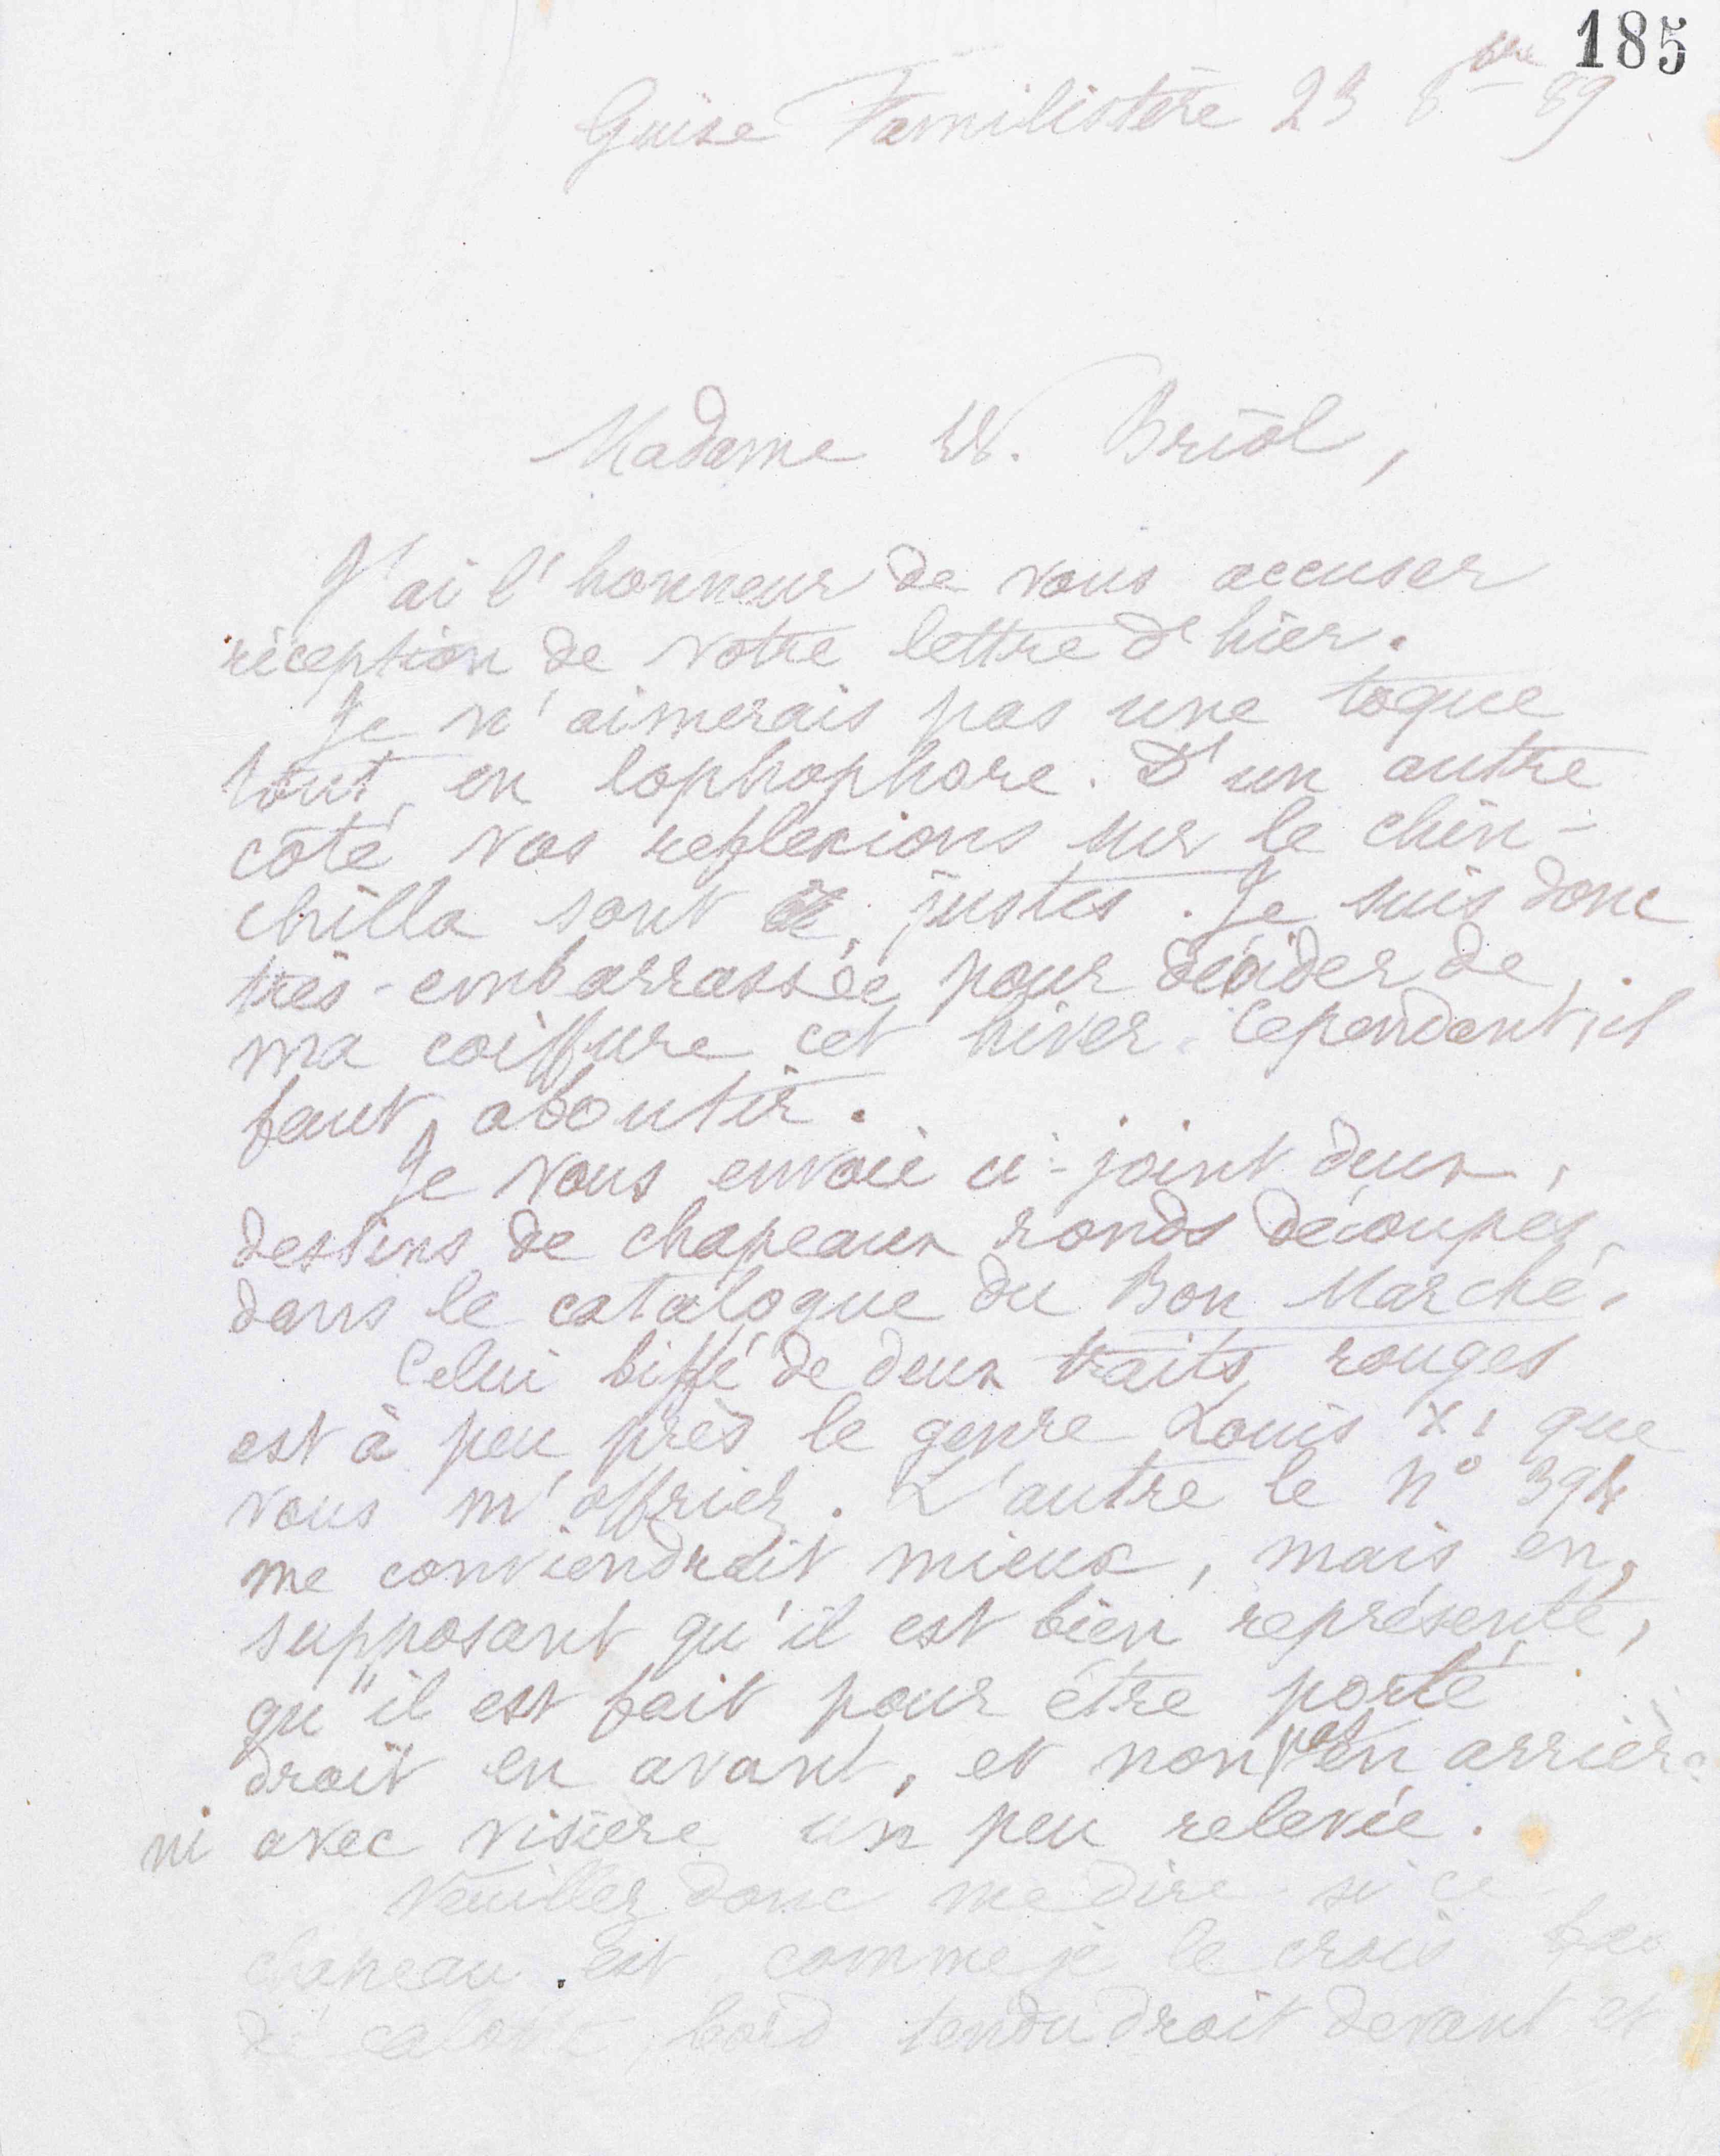 185
Guise Familistère 23 8bre 89
Madame W. Briol,
J'ai l'honneur de vous accuser
réception de votre lettre d'hier.
Je n'aimerais pas une toque
tout en lophophore. D'un autre
côté vos reflexions sur le chin-
chilla sont justes. Je suis donc
très-embarrassée pour décider de
ma coiffure cet hiver. Cependant, il
faut aboutir.
Je vous envoie ci-joint deux
dessins de chapeaux ronds découpés
dans le catalogue du Bon Marché.
Celui biffé de deux traits rouges
est à peu près le genre Louis XI que
vous m'offriez. L'autre le N° 394
me conviendrait mieux, mais en
supposant qu'il est bien représenté,
qu'il est fait pour être porté
droit en avant, et non en arrière
ni avec visière un peu relevée.
Veuillez donc me dire si ce
chapeau est comme je le crois bas
de calotte, bord tendu droit devant et